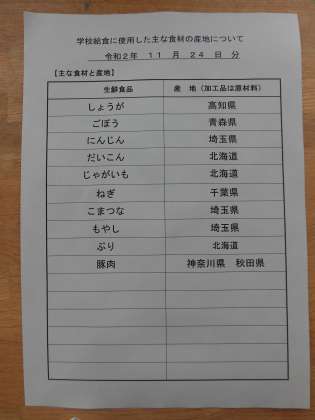 学校給食に使用した主な食材の産地について
令和2年 11 月 24 日 分
【主な食材と産地】
生鮮食品 産 地(加工品は原材料)
しょうが 高知県
ごぼう 青森県
にんじん 埼玉県
だいこん 北海道
じゃがいも 北海道
ねぎ 千葉県
こまつな 埼玉県
もやし 埼玉県
ぶり 北海道
豚肉 神奈川県 秋田県